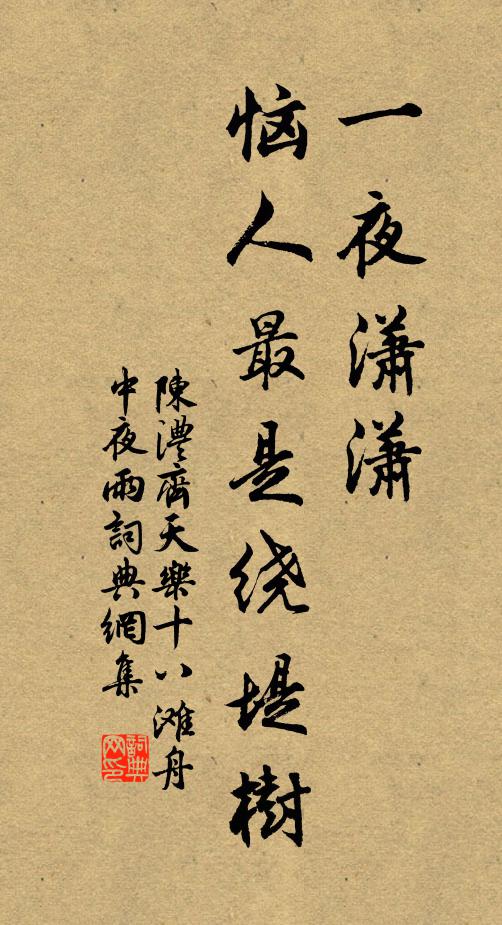 一夜瀟瀟
恼人最是绕堤樹
陳澧齊天樂十八滩舟
中夜雨詞典網集
詞典
网印